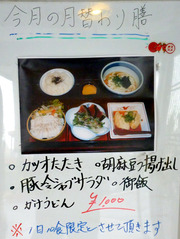 今月の月替わり膳
○ カツオたたき ○胡麻豆腐揚げ出し
○ 豚しゃぶサラダ ○御飯
○ かけうどん ¥1000
※ 1日10食限定とさせて頂きます